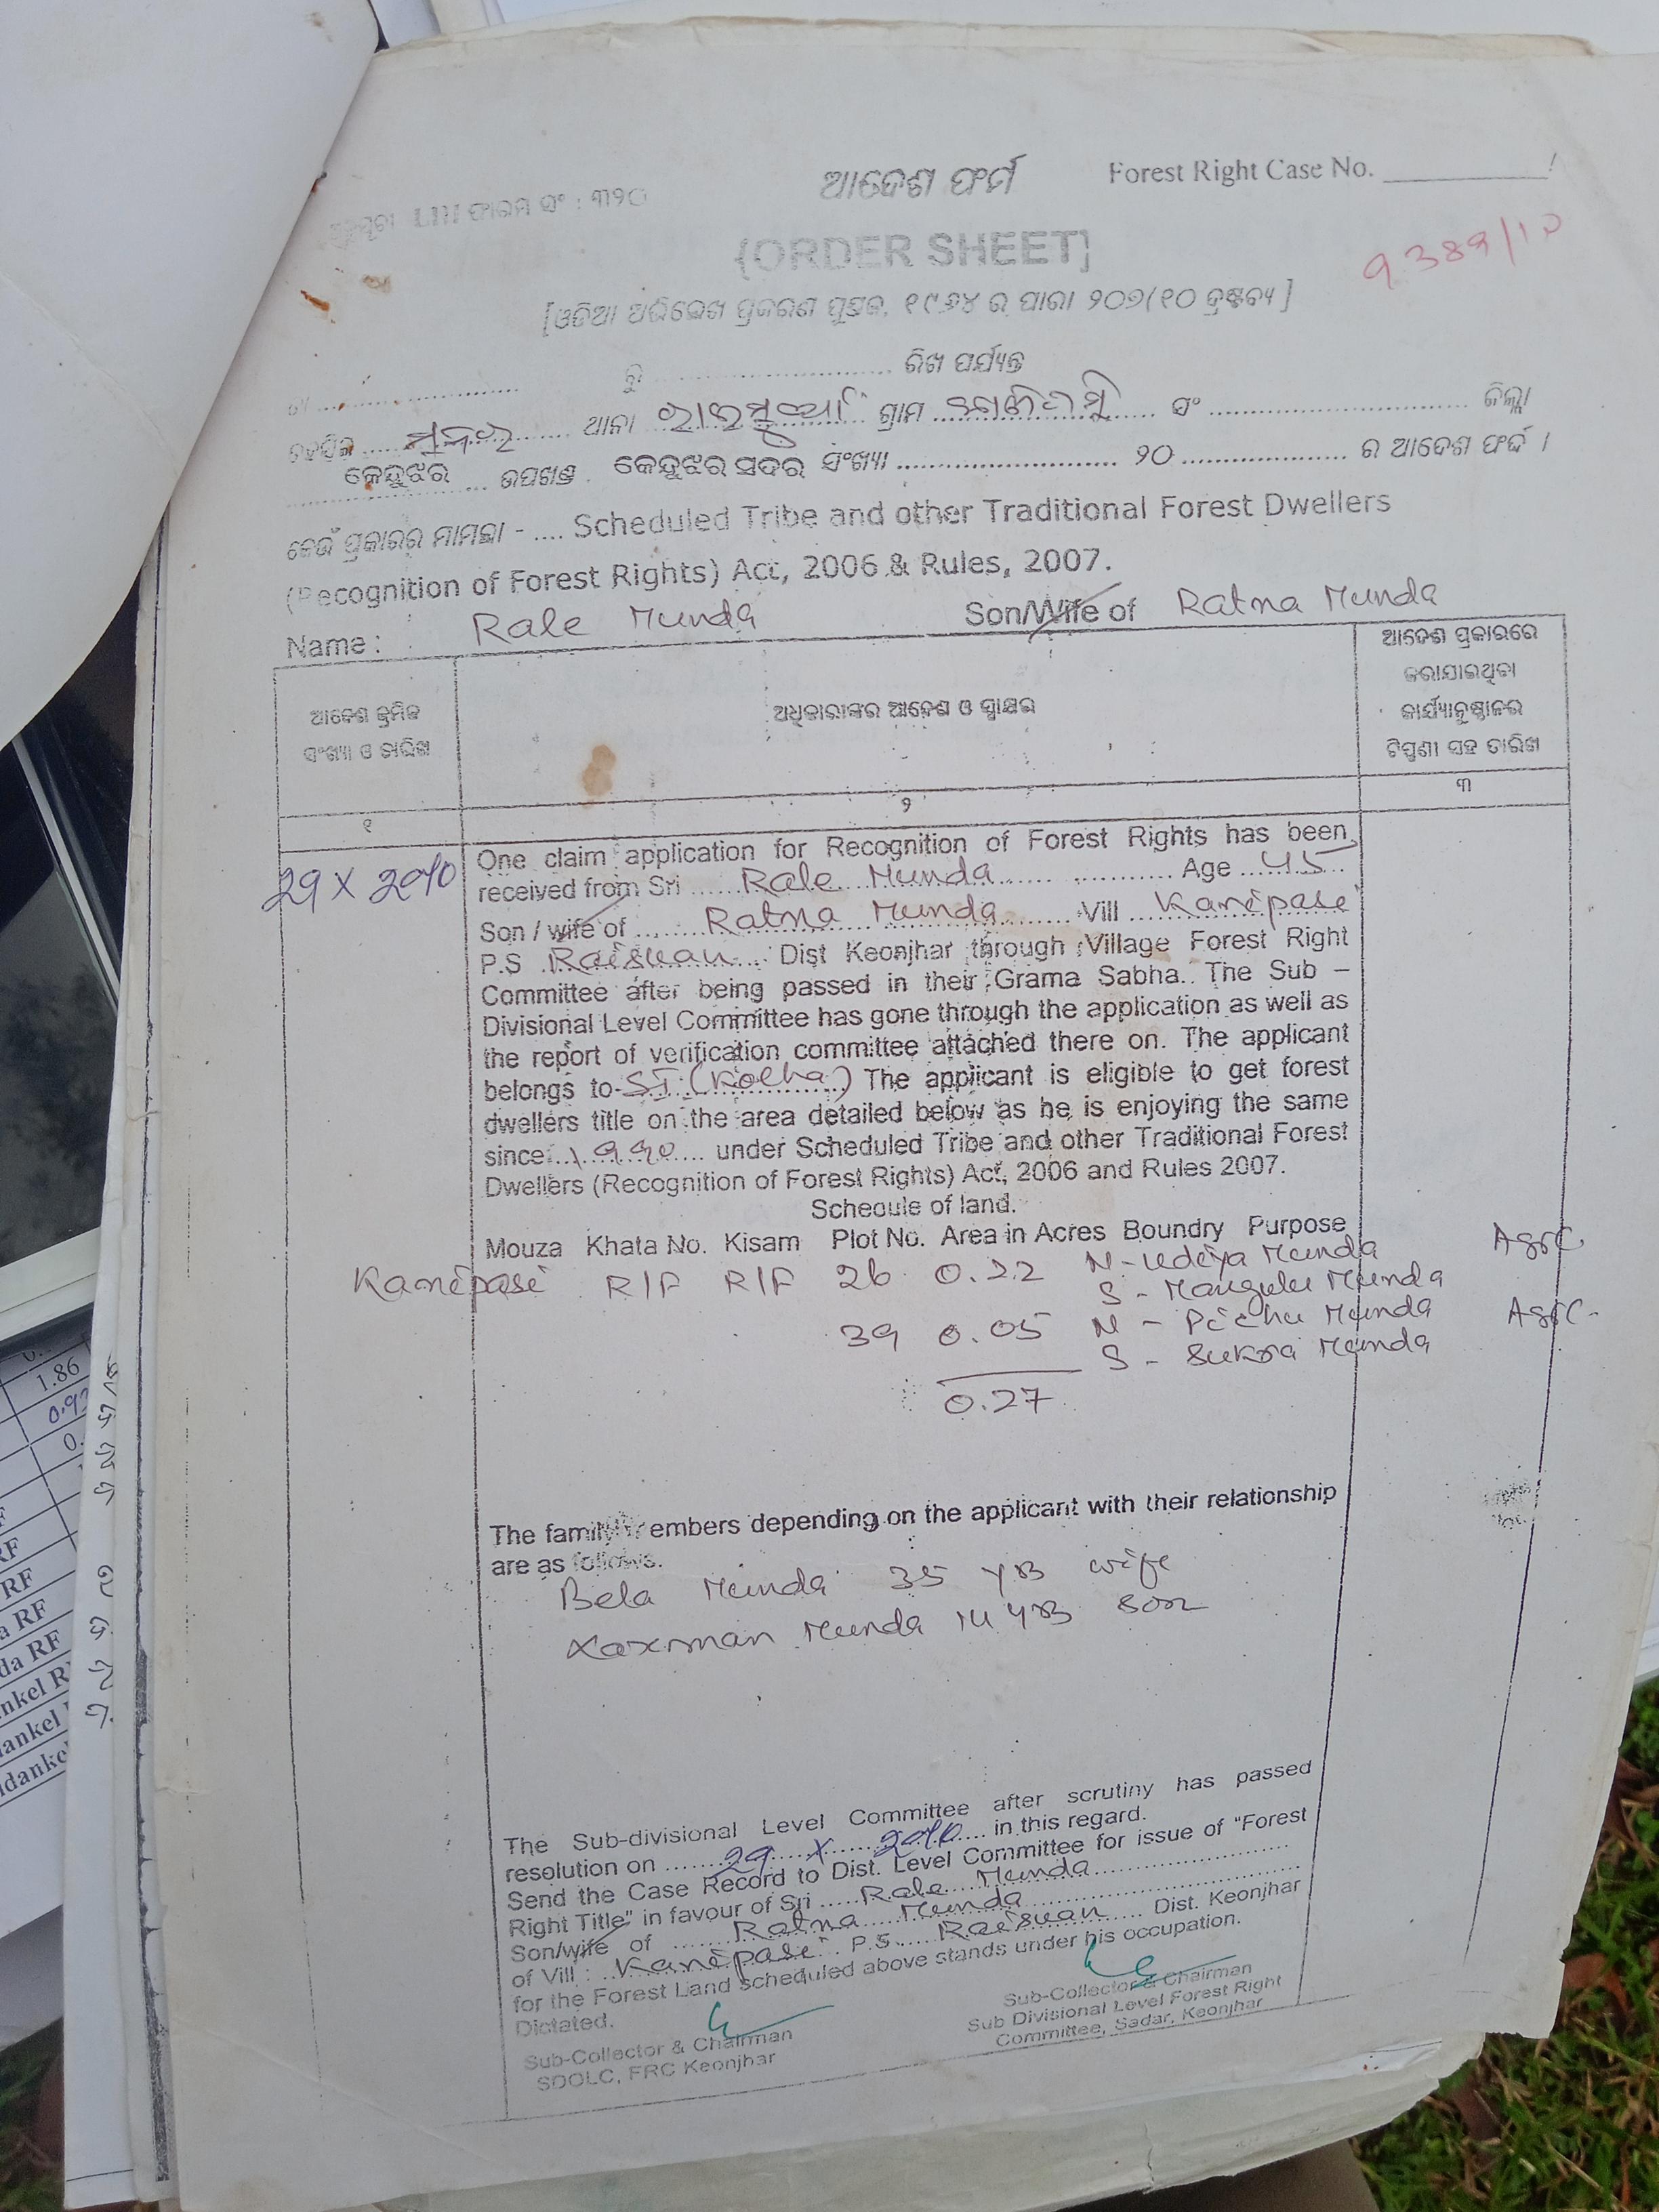 ଆଦେଶ ଫର୍ମ
Forest Right Case No.
ଫାରମ ସଂ : ୩୨୦
{ORDER SHEET]
9389/10
[ଓଡିଆ ଅଭିଲେଖ ପ୍ରକରଣ ପୁସ୍ତକ, ୧୯୬୪ ର ପାରା ୨୦୭(୧୦ ଦ୍ରଷ୍ଟବ୍ୟ ]
ରୁ ରିଖ ପର୍ଯ୍ୟନ୍ତ
ତହସିଲ ଥାନା ରାଇସୁଆଁ ଗ୍ରାମ ସଂ ଜିଲ୍ଲା
କେନ୍ଦୁଝର ଉପଖଣ୍ଡ . କେନ୍ଦୁଝର ସଦର ସଂଖ୍ୟା ୨୦ ର ଆଦେଶ ଫର୍ଦ୍ଦ ।
କେଉଁ ପ୍ରକାରର ମାମଲା - .... Scheduled Tribe and other Traditional Forest Dwellers
(Recognition of Forest Rights) Act, 2006 & Rules, 2007.
Name : Rale Munda Son/Wife of Ratna Munda
ଆଦେଶ କ୍ରମିକ
ସଂଖ୍ୟା ଓ ତାରିଖ
ଅଧିକାରୀଙ୍କର ଆଦେଶ ଓ ସ୍ୱାକ୍ଷର
ଆଦେଶ ପ୍ରକାରରେ
କରାଯାଇଥିବା
କାର୍ଯ୍ୟାନୁଷ୍ଠାନର
ଟିପ୍ପଣୀ ସହ ତାରିଖ
୧ ୨ ୩
29 X 2010
One claim application for Recognition of Forest Rights has been
received from Sri Rale Munda Age 45
Son / wife of Ratna Munda Vill Kanipasi
P.S Raisuan Dist Keonjhar through Village Forest Right
Committee after being passed in their Grama Sabha. The Sub –
Divisional Level Committee has gone through the application as well as
the report of verification committee attached there on. The applicant
belongs to ST (Kolha) The applicant is eligible to get forest
dwellers title on the area detailed below as he is enjoying the same
since 1990 under Scheduled Tribe and other Traditional Forest
Dwellers (Recognition of Forest Rights) Act, 2006 and Rules 2007.
Schedule of land.
Mouza Khata No. Kisam Plot No. Area in Acres Boundry Purpose
Kanipasi R/F R/F 26 0.22 N-Udiya Munda Agric
S - Mangulu Munda
39 0.05 N - Pichu Munda Agric-
S - Sukra Munda
0.27
The family members depending on the applicant with their relationship
are as follows.
Bela Munda 35 yrs wife
Laxman Munda 14 yrs son
The Sub-divisional Level Committee after scrutiny has passed
resolution on 29 X 2010 in this regard.
Send the Case Record to Dist. Level Committee for issue of "Forest
Right Title" in favour of Sri Rale Munda
Son/wife of Ratna Munda
of Vill : Kanipasi P.S. Raisuan Dist. Keonjhar
for the Forest Land scheduled above stands under his occupation.
Dictated.
Sub-Collector & Chairman
SDOLC, FRC Keonjhar
Sub-Collector & Chairman
Sub Divisional Level Forest Right
Committee, Sadar, Keonjhar
1.86
RF
RF
a RF
da RF